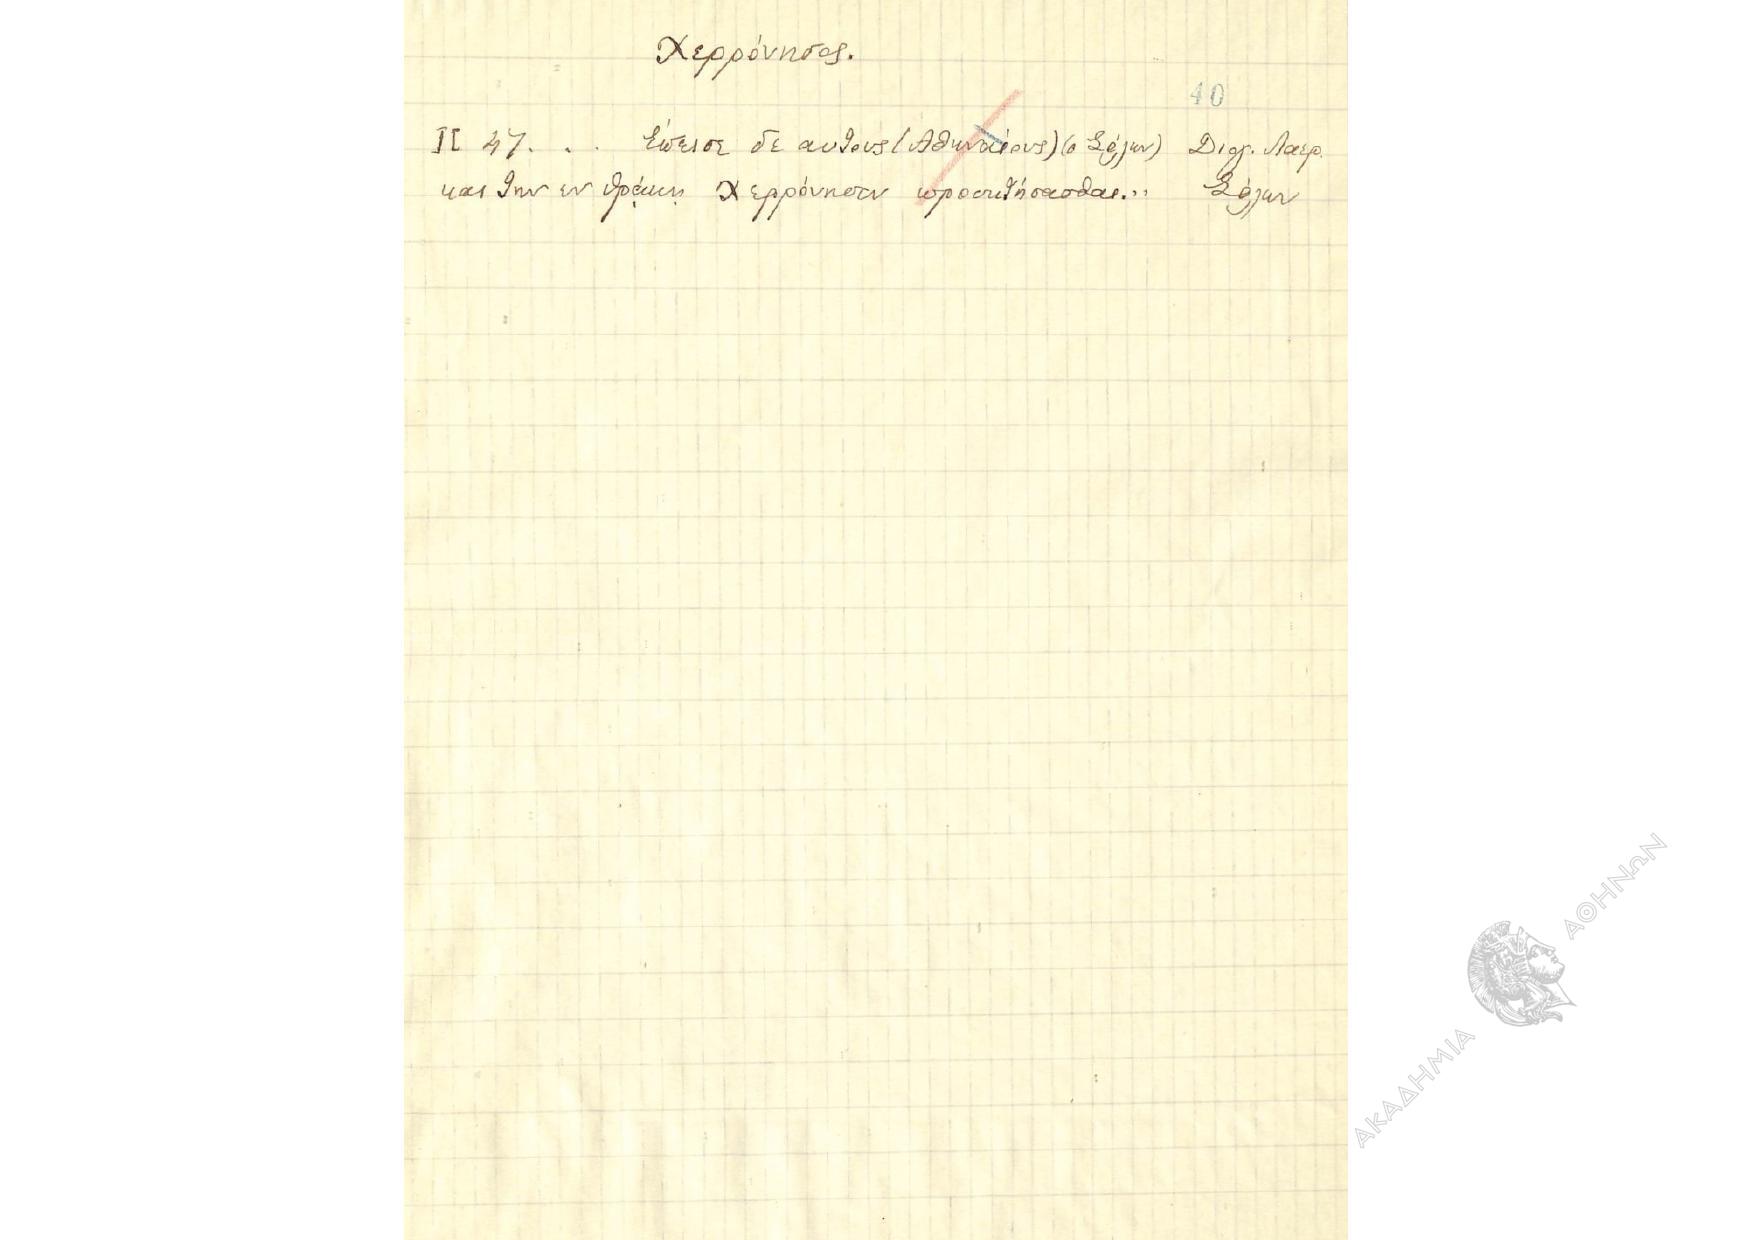 Χερρόνησος.
40
II 47. . . έπεισε δε αυτους (Αθηναίους) (ο Σόλων) Διογ. Λαερ.
και την εν Θράκη Χερρόνησον προσκτήσασθαι... Σόλων
ΑΚΑΔΗΜΙΑ ΑΘΗΝΩΝ